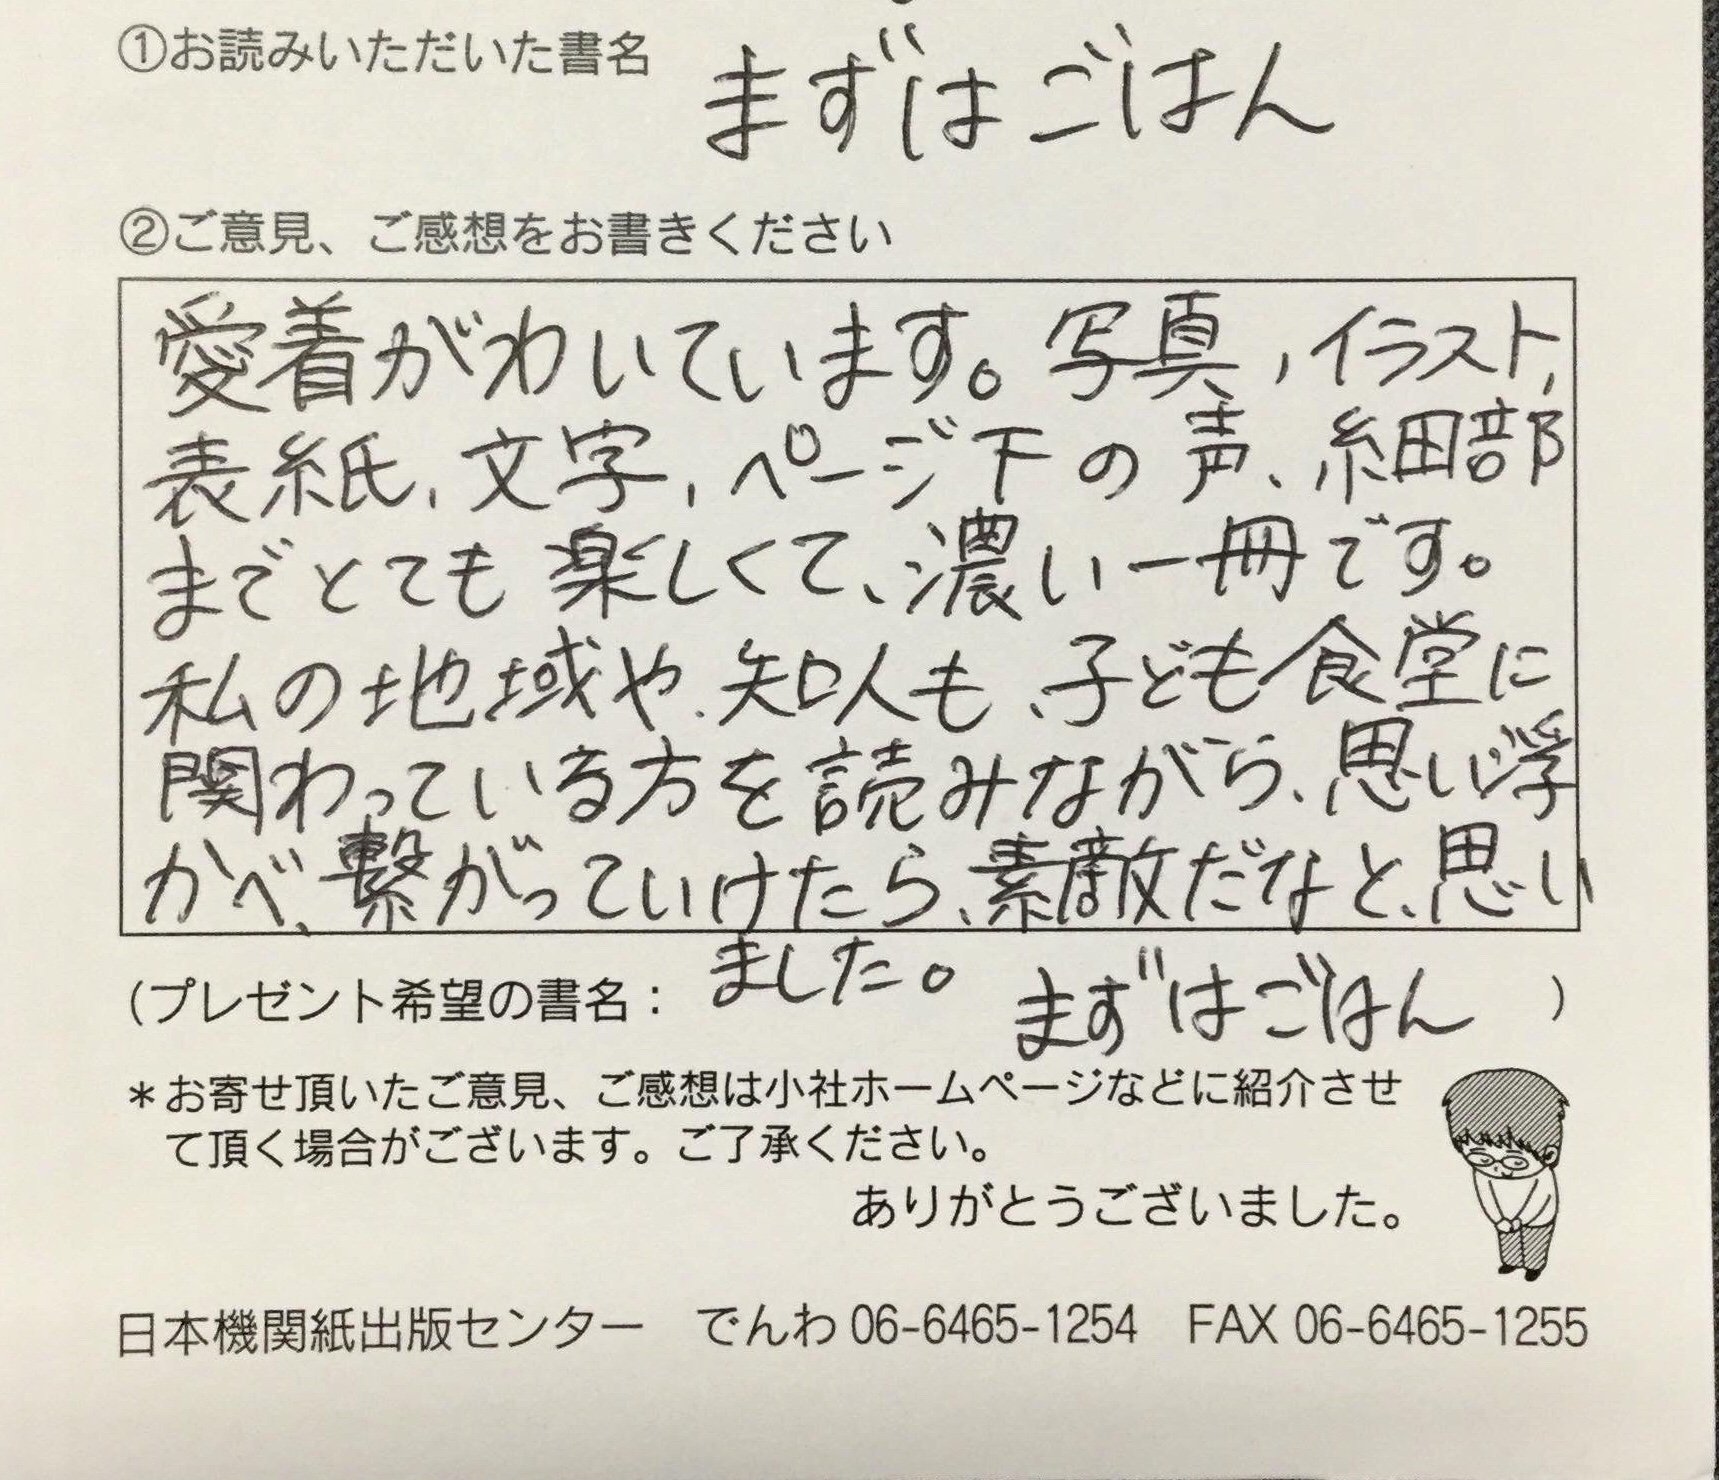 ①お読みいただいた書名 まずはごはん
②ご意見、ご感想をお書きください
愛着がわいています。写真、イラスト、
表紙、文字、ページ下の声、細部
までとても楽しくて、濃い一冊です。
私の地域や、知人も、子ども食堂に
関わっている方を読みながら、思い浮
かべ、繋がっていけたら、素敵だなと、思い
ました。
(プレゼント希望の書名: まずはごはん )
*お寄せ頂いたご意見、ご感想は小社ホームページなどに紹介させ
て頂く場合がございます。ご了承ください。
ありがとうございました。
日本機関紙出版センター でんわ 06-6465-1254 FAX 06-6465-1255